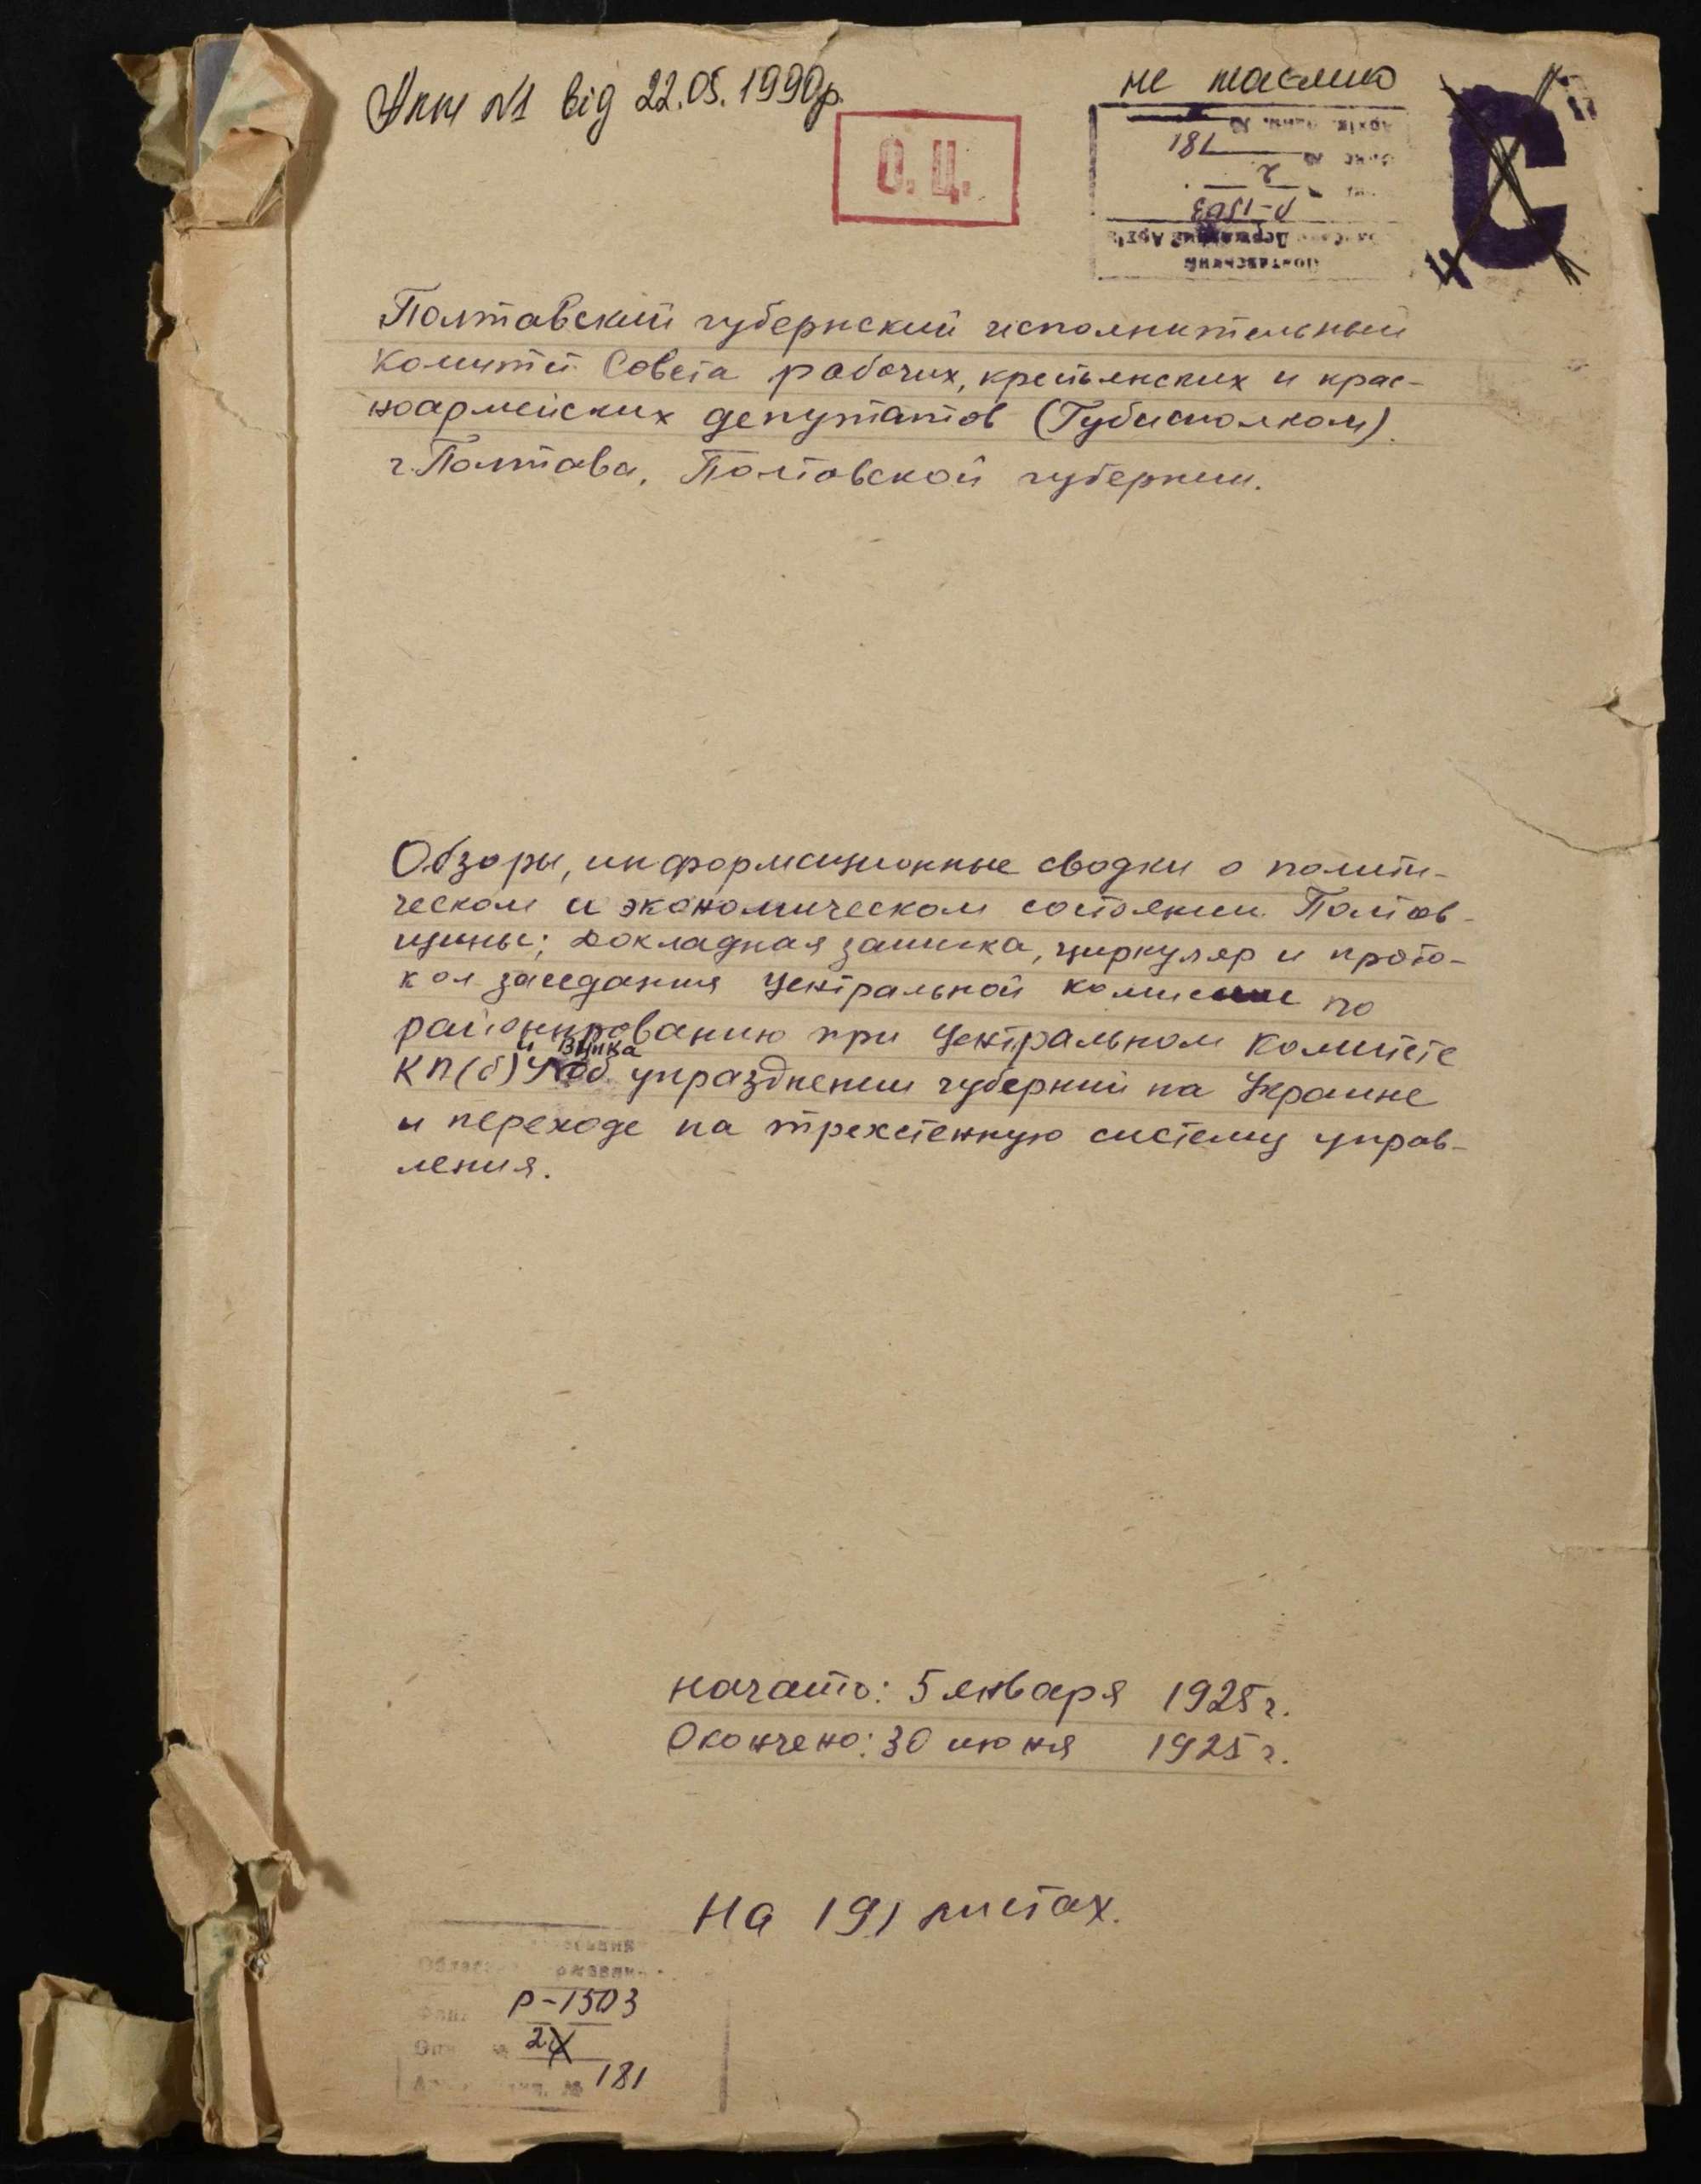 Акт №1 від 22.05.1990р.
не таємно
О. Ц.
С
Архів. №
181
2
Р-1503
Державний Архів
Полтавський
Полтавский губернский исполнительный
комитет Совета рабочих, крестьянских и крас-
ноармейских депутатов (Губисполком).
г. Полтава, Полтавской губернии.
Обзоры, информационные сводки о полити-
ческом и экономическом состоянии Полтав-
щины; докладная записка, циркуляр и прото-
кол заседания Центральной комиссии по
районированию при Центральном Комитете
и ВЦИКа
КП(б)У об упразднении губерний на Украине
и переходе на трехстепную систему управ-
ления.
Начато: 5 января 1925 г.
Окончено: 30 июня 1925 г.
На 191 листах.
Р-1503
2
181